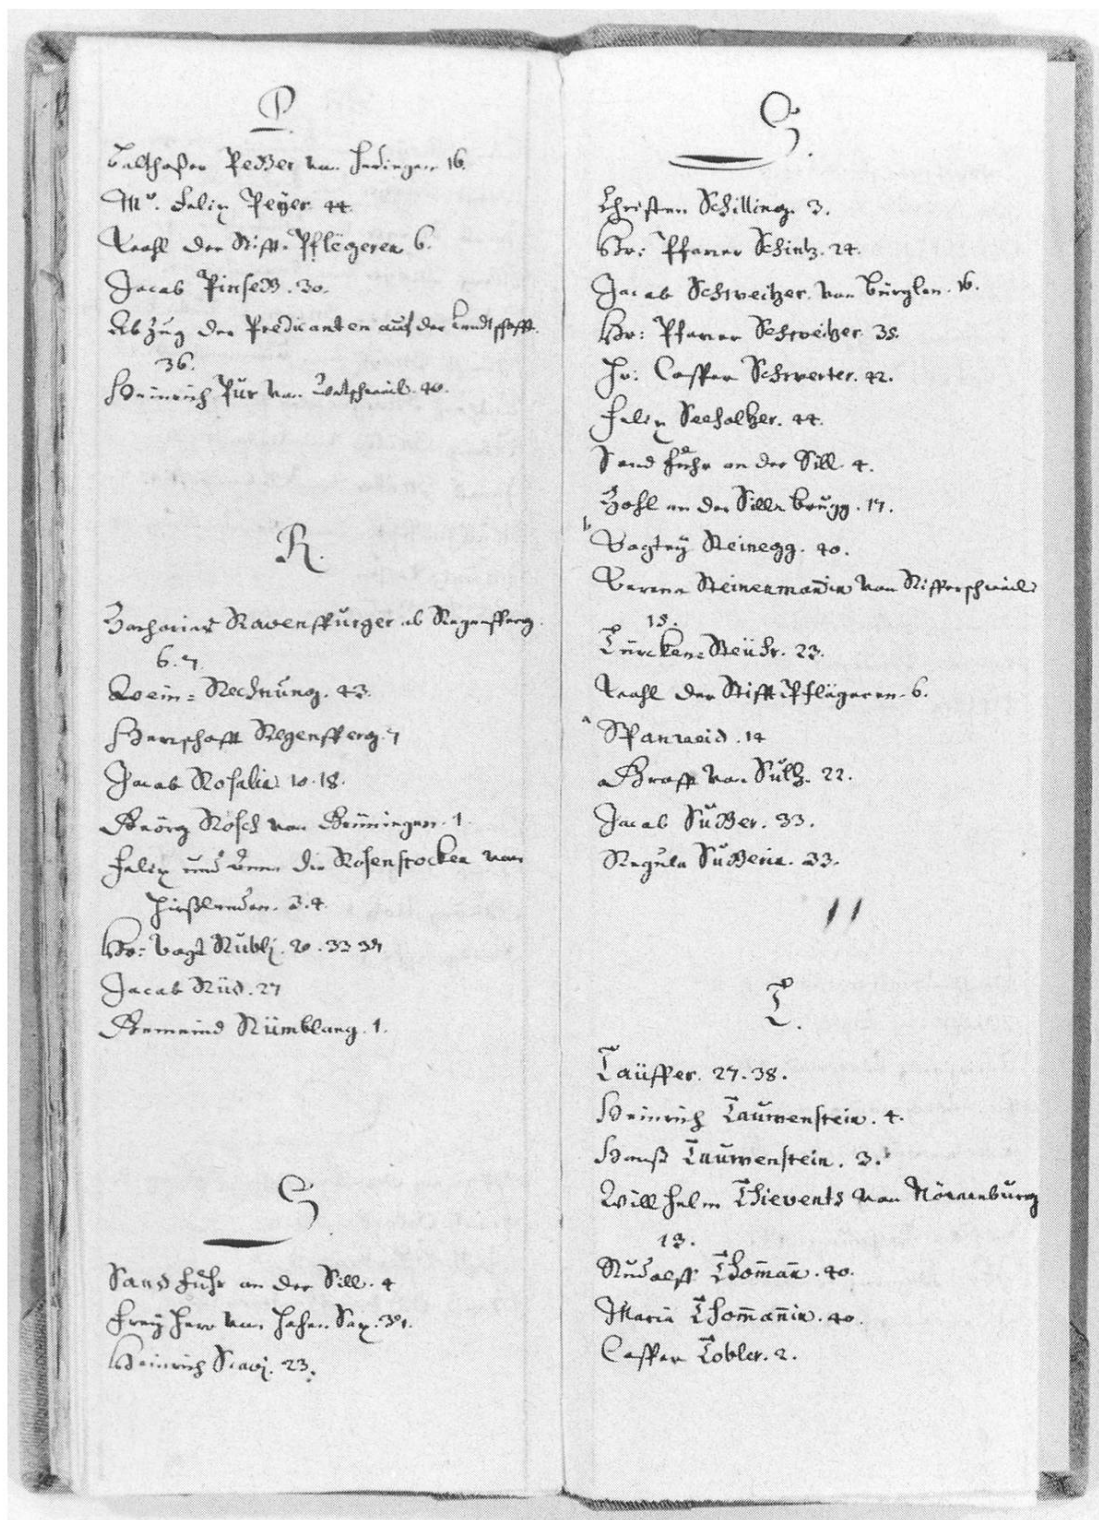 P.
Balthaßer Peßer von Hedingen 16.
Mr. Felix Peÿer 44.
Wahl der Stifft-Pflegeren 6.
Jacob Pinseß. 30.
Abzug der Predicanten auf der Landtschafft.
36.
Heinrich Pur von 40.
R.
Zacharias Ravenspurger ab Regensperg.
6. 7.
Wein-Rechnung. 43.
Herrschafft Regensperg. 7
Jacob Rosalia 10. 18.
Geörg Rösch von Grüningen. 1.
Felix und die Rosenstocken von
Hirßlanden. 3. 4.
Hr: Vogt Rubli. 20. 33 37
Jacob Rüd. 27
Gemeind Rümblang. 1.
S.
Sand fuhr an der Sill. 4
Freÿ Herr von Hohen Sax. 31.
Heinrich 23.
S.
Christen Schilling. 3.
Hr: Pfarrer Schintz. 24.
Jacob Schweitzer von Bürglen. 16.
Hr: Pfarrer Schweitzer 35.
Jr: Casper Schwerter. 42.
Felix Seeholtzer. 44.
Sand fuhr an der Sill. 4.
Zohl an der Sillbrugg. 17.
b Vogteÿ Steinegg. 40.
Verena Steinenmañin von Rifferschweil
15.
Türcken-Steühr. 23.
Wahl der Stifft Pflägeren. 6.
a Spanweid. 14
Graff von Sultz. 22.
Jacob Sußer. 33.
Regula Sußerin. 33.
T.
Taüffer. 27. 38.
Heinrich Tauwenstein. 4.
Hanß Tauwenstein. 3.
Willhelm Thievents von Nöuenburg
13.
Rudolff Thomañ. 40.
Maria Thomañin. 40.
Casper Tobler. 2.